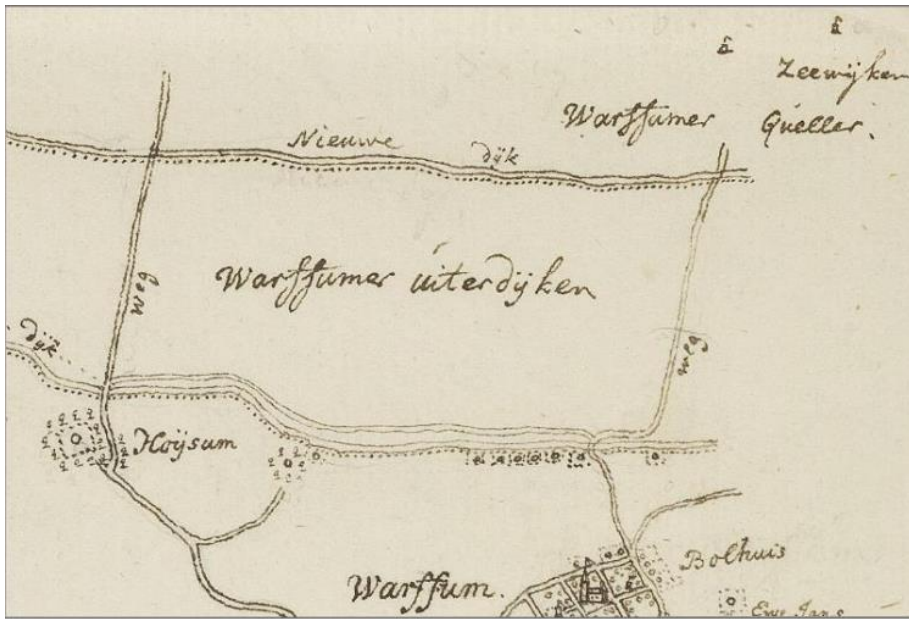 Zeewijken
Warffumer Queller.
Nieuwe dijk
Warffumer uiterdijken
weg
weg
dijk
Hoijsum
Bolhuis
Warffum.